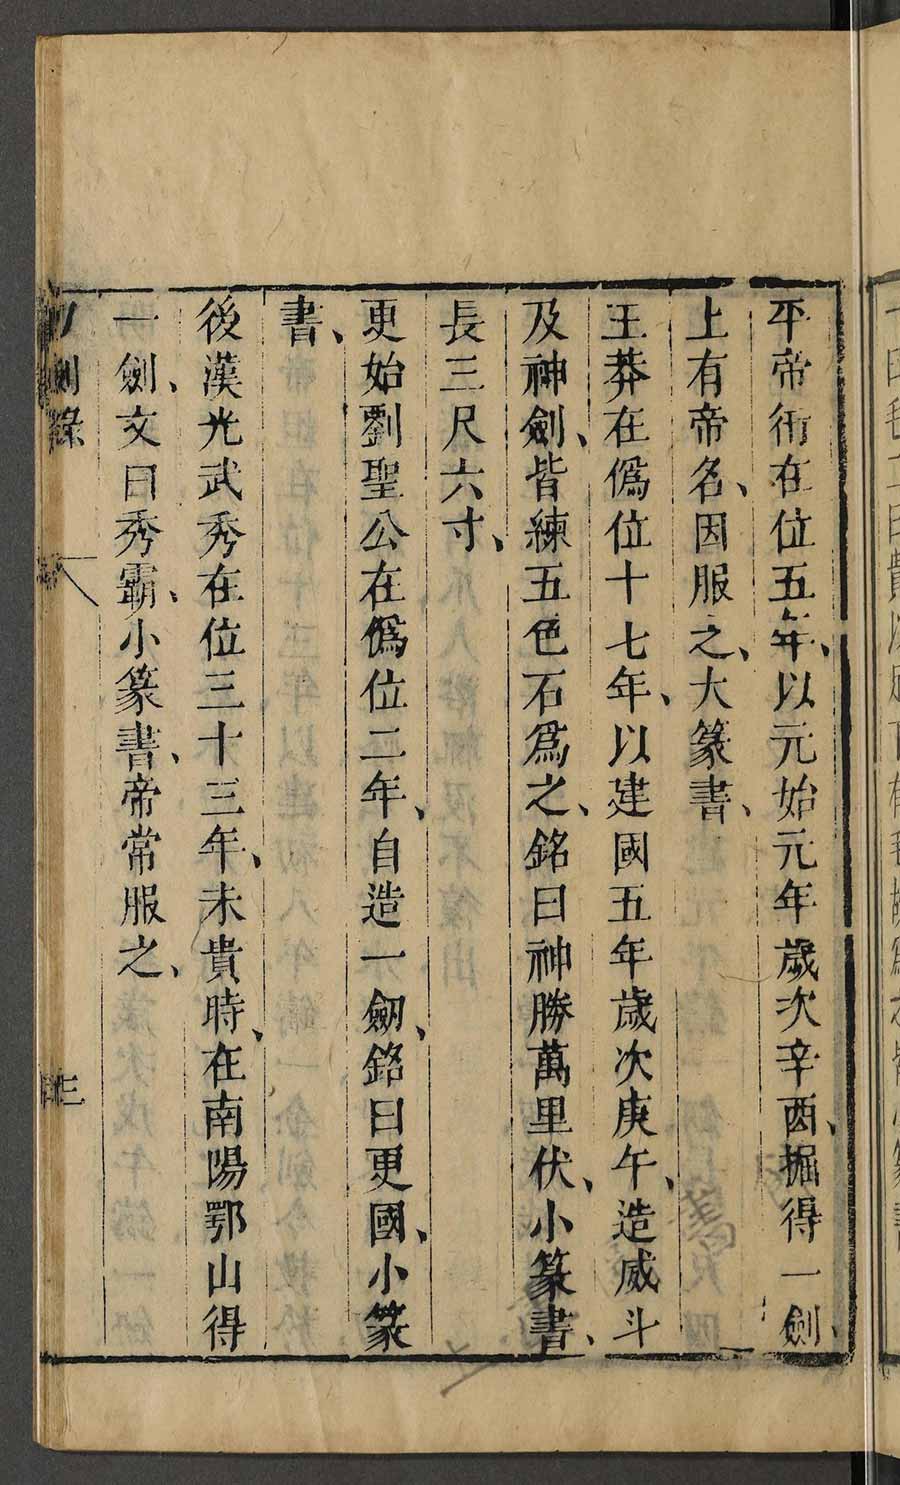 平帝衎在位五年、以元始元年歲次辛酉、掘得一劍、
上有帝名、因服之、大篆書、
王莽在僞位十七年、以建國五年歲次庚午、造威斗
及神劍、皆練五色石爲之、銘曰神勝萬里伏、小篆書、
長三尺六寸、
更始劉聖公在僞位二年、自造一劒、銘曰更國、小篆
書、
後漢光武秀在位三十三年、未貴時、在南陽鄂山得
一劍、文曰秀霸、小篆書、帝常服之、
刀劍錄
三